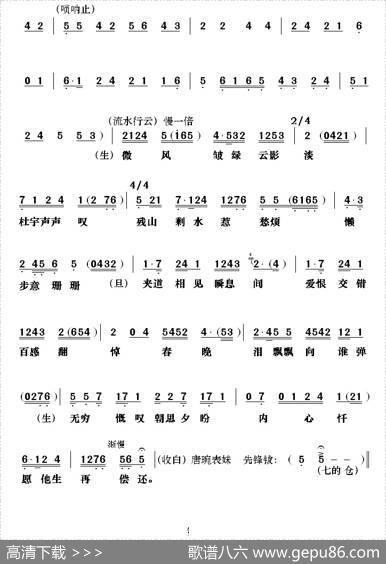 (唢呐止)
4 2 | 5 5 4 2 | 5 6 4 3 | 2 · 1 | 2 4 2 1 6
0 1 | 6·1 2 4 | 2 1 6 1 | 2 2 | 5 6 1 6 5 | 4 3 2 4 | 5 1
(流水行云) 慢一倍 2/4
2 4 5 5 3) | 2124 5(165) | 4·532 1253 | 2 (0421) |
(生) 微 风 皱 绿 云影 淡
4/4
7 1 2 4 1(2 76) | 5 21 7·124 1276 5 5(6165) | 4·3
杜宇声声 叹 残山 剩 水 惹 愁烦 懒
2 45 6 5 (0432) | 1·7 24 1 1243 2·(4) | 1·7 24 1
步意 珊 珊 (旦) 夹道 相见 瞬息 间 爱恨 交错
1243 2(654) | 2 0 4 5452 4·(53) | 2·45 5 4542 12 1
百感 翻 悼 春 晚 泪飘飘向 谁弹
(0276) | 5 5 7 171 2 2 7 171 | 0 7 0 1 2 4 1(21)
(生) 无穷 慨叹 朝思夕 盼 内 心 忏
渐慢
6·12 4 1276 56 5 | (收白) 唐琬表妹 先锋钹: ( 5 5 - - )
愿他生 再 偿 还。 (七的 仓)
高清下载 >>> 歌谱八六 www.gepu86.com